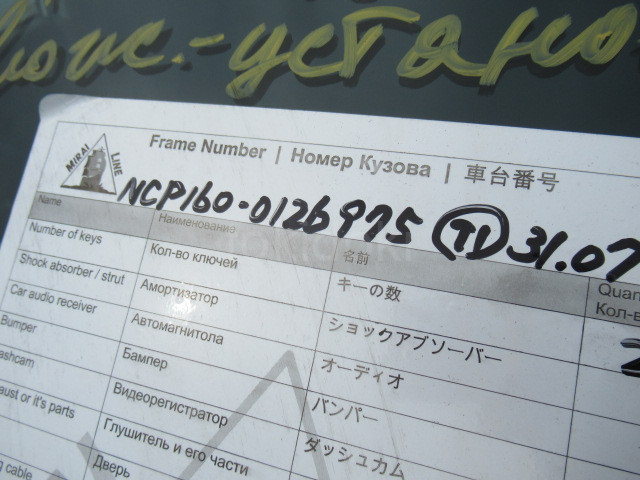 MIRAI LINE
Frame Number | Номер Кузова | 車台番号
NCP160-0126975 TI 31.07
Name Наименование 名前 Quan
Кол-в
Number of keys Кол-во ключей キーの数 2
Shock absorber / strut Амортизатор ショックアブソーバー
Car audio receiver Автомагнитола オーディオ
Bumper Бампер バンパー
ashcam Видеорегистратор ダッシュカム
aust or it's parts Глушитель и его части
g cable Дверь